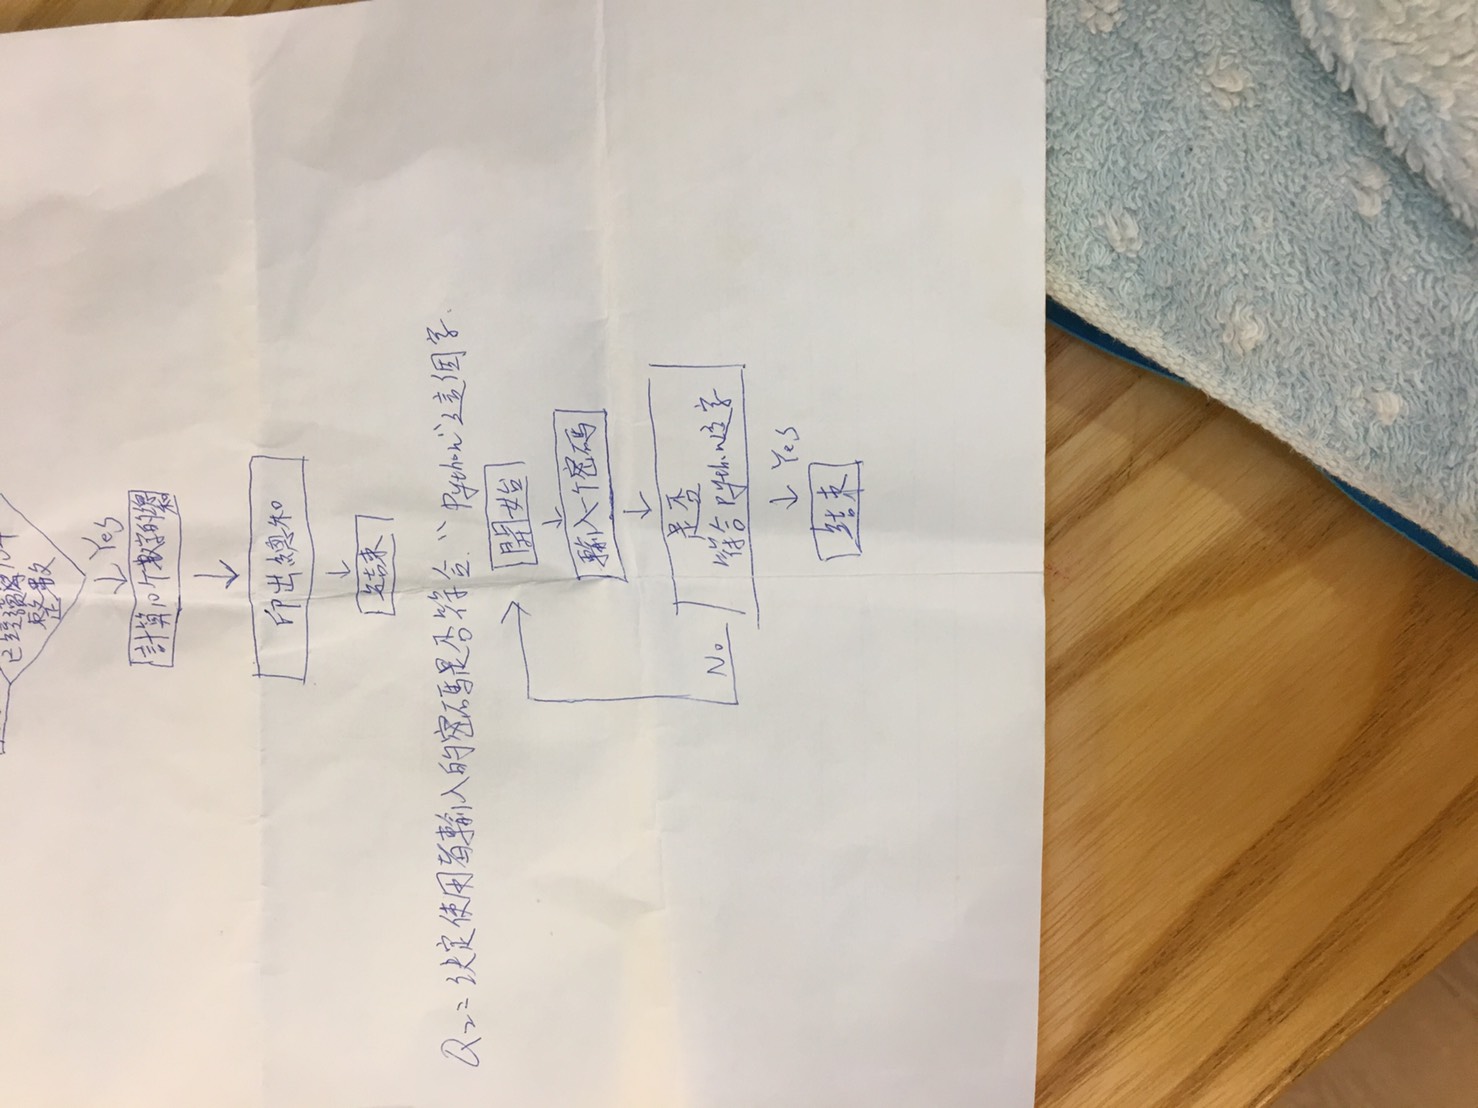 已經讀取
整數
Yes
計算10個數字的總和
印出總和
結束
Q2=決定使用者輸入的密碼是否符合"Python"這個字.
開始
輸入一個密碼
是否
符合Python這字
No
Yes
結束